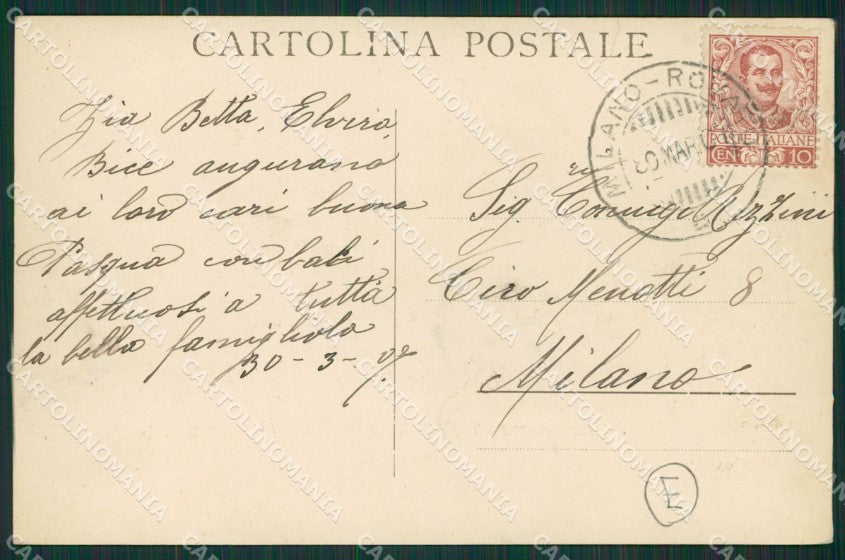 CARTOLINA POSTALE
Zia Betta, Elvira,
Bice augurano
ai loro cari buona
Pasqua con baci
affettuosi a tutta
la bella famigliola
30-3-07
MILANO-ROMA
30 MAR
POSTE ITALIANE
CEN 10
Sigri Coniugi Rizzini
Ciro Menotti 8
Milano
CARTOLINOMANIA